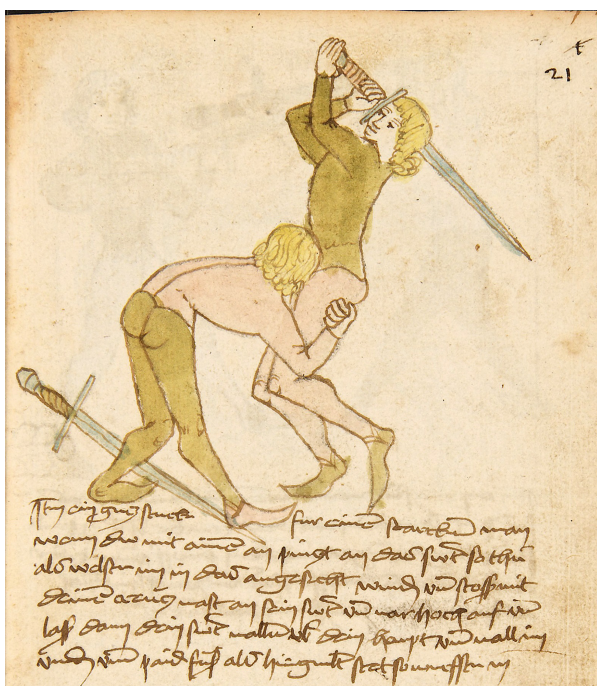 21
Itm ain gutz stuckh fur ainē starckhn man
wann du mit ainē an pingt an das swt so thu
als wolstu im in das angesecht windn vnd stoss mit
deinē creutz vast an sein swt vnd var hoch auf vnd
lass dann dein swt vallen vbr dein haupt vnd vall im
vndn vmb paid fuss als hie gmolt stet so